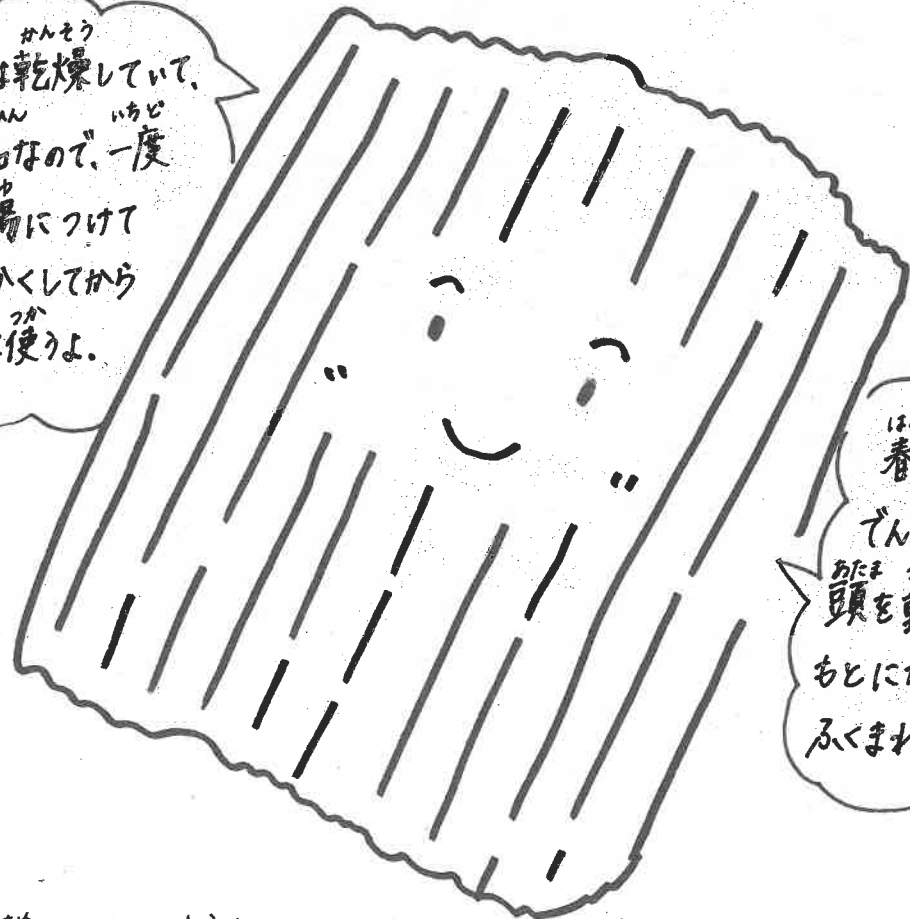 かんそう
は乾燥していて、
いちど
なので、一度
ゆ
湯につけて
かくしてから
つか
使うよ。
は
春
でん
あたま
頭を
もとに
ふくまれ